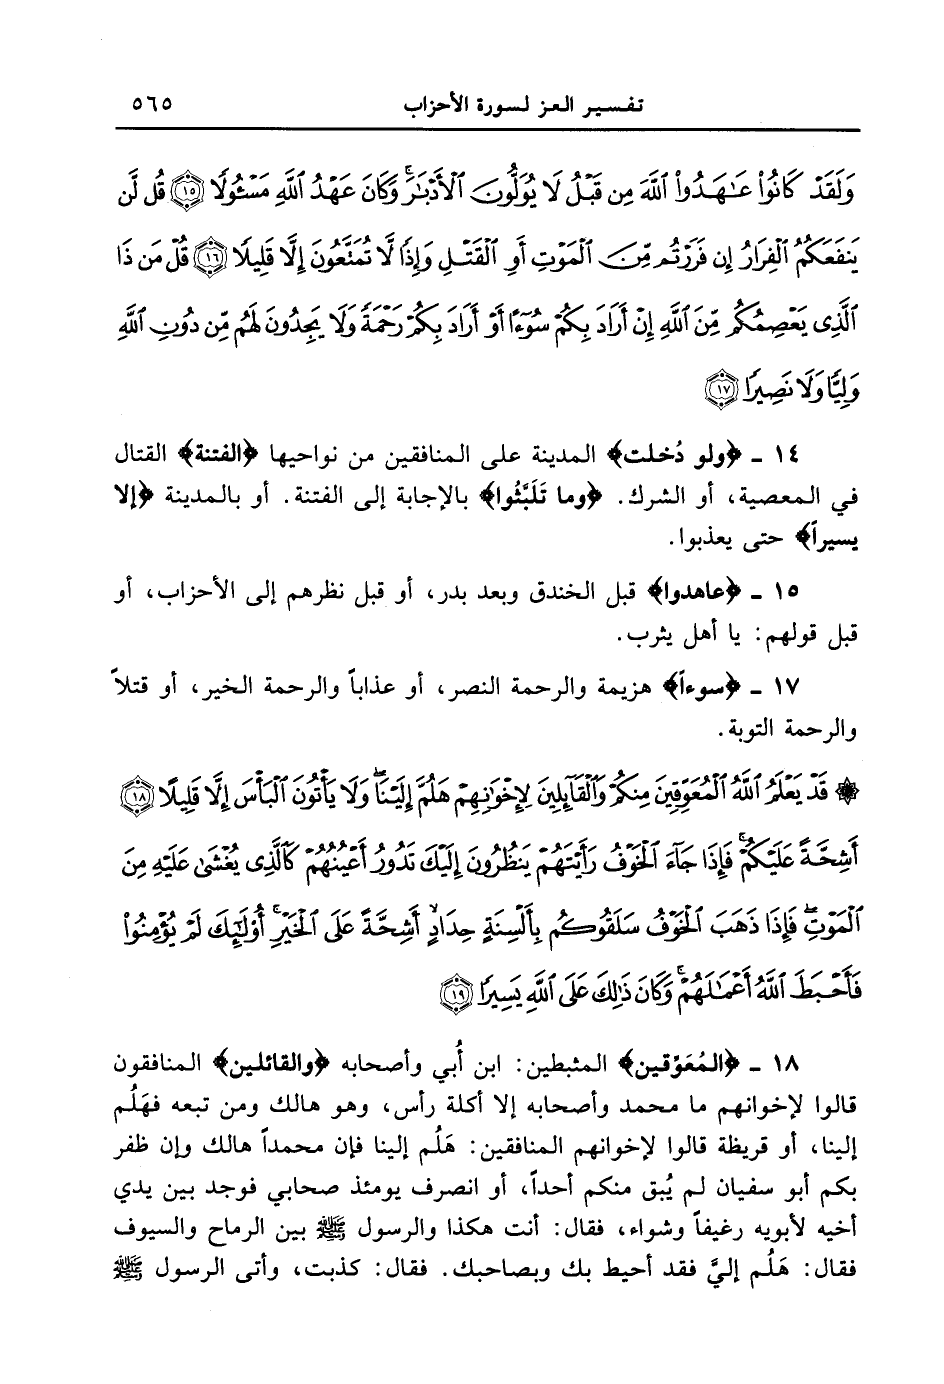 تفسير العز لسورة الأحزاب ٥٦٥
وَلَقَدْ كَانُوا۟ عَـٰهَدُوا۟ ٱللَّهَ مِن قَبْلُ لَا يُوَلُّونَ ٱلْأَدْبَـٰرَ ۚ وَكَانَ عَهْدُ ٱللَّهِ مَسْـُٔولًا ﴿١٥﴾ قُل لَّن
يَنفَعَكُمُ ٱلْفِرَارُ إِن فَرَرْتُم مِّنَ ٱلْمَوْتِ أَوِ ٱلْقَتْلِ وَإِذًا لَّا تُمَتَّعُونَ إِلَّا قَلِيلًا ﴿١٦﴾ قُلْ مَن ذَا
ٱلَّذِى يَعْصِمُكُم مِّنَ ٱللَّهِ إِنْ أَرَادَ بِكُمْ سُوٓءًا أَوْ أَرَادَ بِكُمْ رَحْمَةً وَلَا يَجِدُونَ لَهُم مِّن دُونِ ٱللَّهِ
وَلِيًّا وَلَا نَصِيرًا ﴿١٧﴾
١٤ ـ ﴿ولو دُخلت﴾ المدينة على المنافقين من نواحيها ﴿الفتنة﴾ القتال
في المعصية، أو الشرك. ﴿وما تَلَبَّثُوا﴾ بالإجابة إلى الفتنة. أو بالمدينة ﴿إلا
يسيراً﴾ حتى يعذبوا.
١٥ ـ ﴿عاهدوا﴾ قبل الخندق وبعد بدر، أو قبل نظرهم إلى الأحزاب، أو
قبل قولهم: يا أهل يثرب.
١٧ ـ ﴿سوءاً﴾ هزيمة والرحمة النصر، أو عذاباً والرحمة الخير، أو قتلاً
والرحمة التوبة.
۞ قَدْ يَعْلَمُ ٱللَّهُ ٱلْمُعَوِّقِينَ مِنكُمْ وَٱلْقَآئِلِينَ لِإِخْوَٰنِهِمْ هَلُمَّ إِلَيْنَا ۖ وَلَا يَأْتُونَ ٱلْبَأْسَ إِلَّا قَلِيلًا ﴿١٨﴾
أَشِحَّةً عَلَيْكُمْ ۖ فَإِذَا جَآءَ ٱلْخَوْفُ رَأَيْتَهُمْ يَنظُرُونَ إِلَيْكَ تَدُورُ أَعْيُنُهُمْ كَٱلَّذِى يُغْشَىٰ عَلَيْهِ مِنَ
ٱلْمَوْتِ ۖ فَإِذَا ذَهَبَ ٱلْخَوْفُ سَلَقُوكُم بِأَلْسِنَةٍ حِدَادٍ أَشِحَّةً عَلَى ٱلْخَيْرِ ۚ أُو۟لَـٰٓئِكَ لَمْ يُؤْمِنُوا۟
فَأَحْبَطَ ٱللَّهُ أَعْمَـٰلَهُمْ ۚ وَكَانَ ذَٰلِكَ عَلَى ٱللَّهِ يَسِيرًا ﴿١٩﴾
١٨ ـ ﴿المُعَوِّقين﴾ المثبطين: ابن أُبي وأصحابه ﴿والقائلين﴾ المنافقون
قالوا لإخوانهم ما محمد وأصحابه إلا أكلة رأس، وهو هالك ومن تبعه فهَلُم
إلينا، أو قريظة قالوا لإخوانهم المنافقين: هَلُم إلينا فإن محمداً هالك وإن ظفر
بكم أبو سفيان لم يُبق منكم أحداً، أو انصرف يومئذ صحابي فوجد بين يدي
أخيه لأبويه رغيفاً وشواء، فقال: أنت هكذا والرسول ﷺ بين الرماح والسيوف
فقال: هَلُم إليَّ فقد أحيط بك وبصاحبك. فقال: كذبت، وأتى الرسول ﷺ